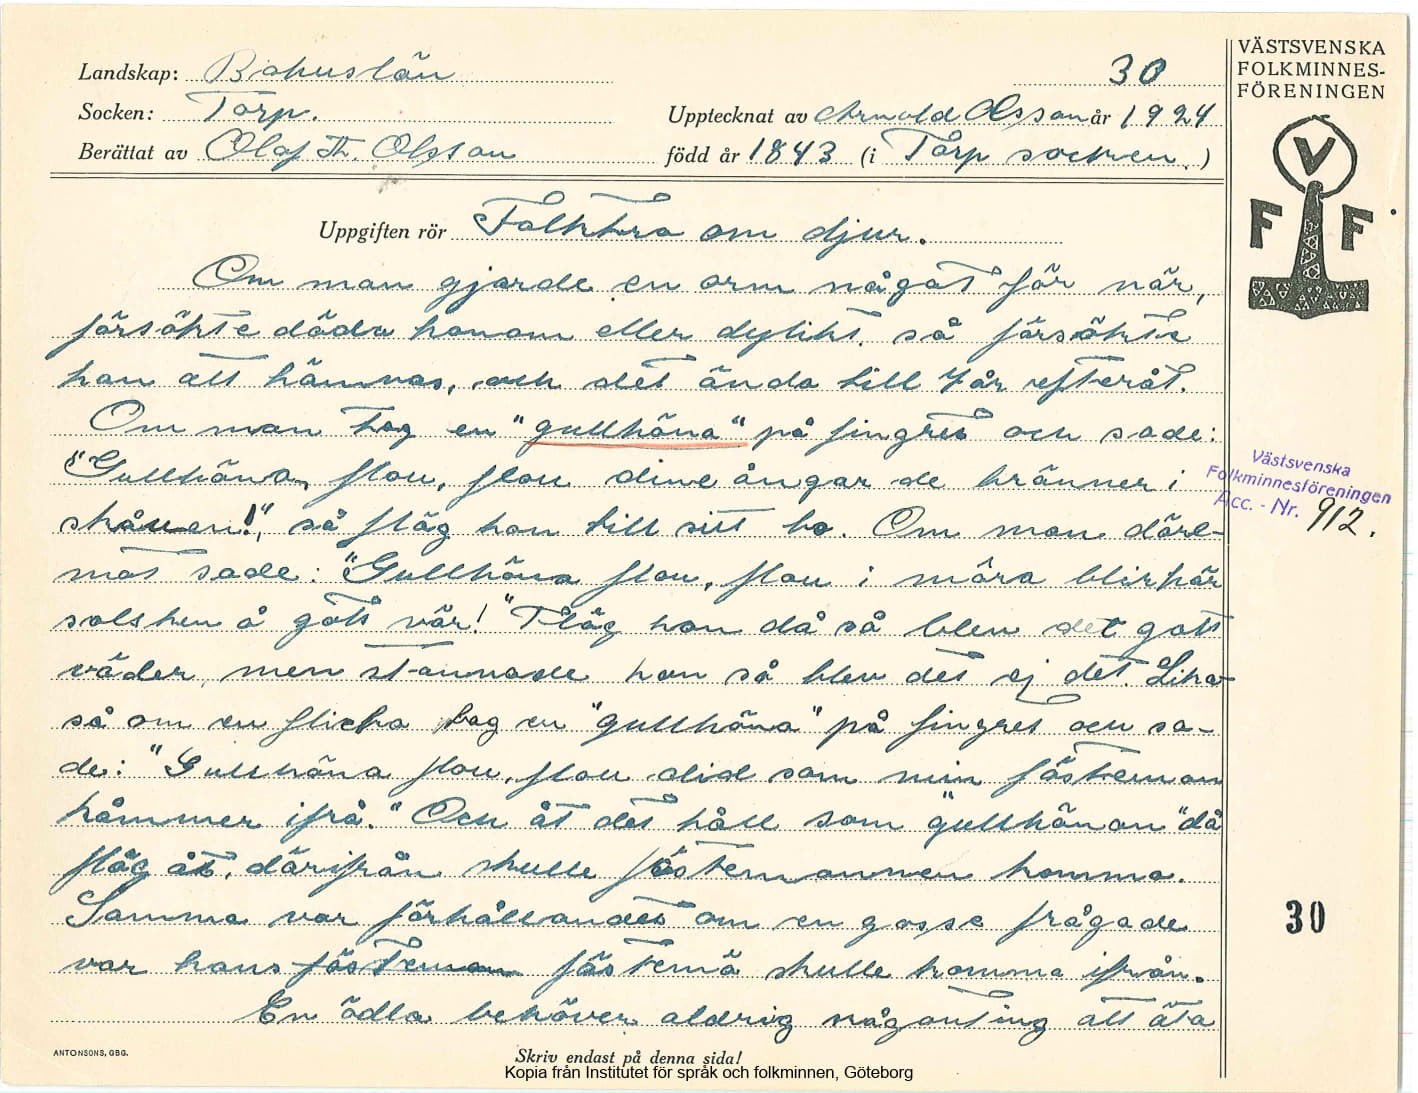 Landskap: Bohuslän
30
Socken: Torp.
Upptecknat av Arnold Olsson år 1924
Berättat av Olof Th. Olsson
född år 1843 (i Torp socken.)
VÄSTSVENSKA
FOLKMINNES-
FÖRENINGEN
V
F F
Uppgiften rör Folktro om djur.
Om man gjorde en orm något för när,
försökte döda honom eller dylikt, så försökte
han att hämnas, och det ända till 7 år efteråt.
Om man tog en "gullhöna" på fingret och sade:
"Gullhöna flau, flau dine ångar de bränner i
skåuen!", så flög hon till sitt bo. Om man däre-
mot sade: "Gullhöna flau, flau i möra blir här
solsken å gött vär!" Flög hon då så blev det gott
väder, men stannade hon så blev det ej det. Lika-
så om en flicka tog en "gullhöna" på fingret och sa-
de: "Gullhöna flau, flau did som min fästeman
kåmmer ifrå." Och åt det håll som "gullhönan" då
flög åt, därifrån skulle fästemannen komma.
Samma var förhållandet om en gosse frågade
var hans fästeman fästemö skulle komma ifrån.
En ödla behöver aldrig någonting att äta
Västsvenska
Folkminnesföreningen
Acc. - Nr. 912.
30
ANTONSONS, GBG.
Skriv endast på denna sida!
Kopia från Institutet för språk och folkminnen, Göteborg